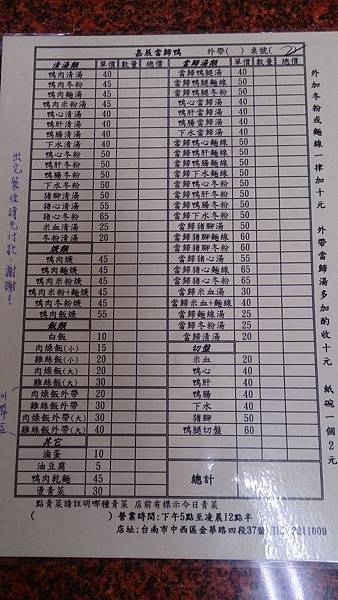 嘉展當歸鴨 外帶( ) 桌號( )
清湯類 單價 數量 總價
鴨肉清湯 40
鴨肉冬粉 45
鴨肉麵線 45
鴨肉米粉湯 45
鴨心清湯 40
鴨肝清湯 40
鴨腸清湯 40
下水清湯 40
鴨心冬粉 50
鴨肝冬粉 50
鴨腸冬粉 50
下水冬粉 50
豬腳清湯 50
豬心清湯 55
豬心冬粉 65
米血清湯 25
冬粉清湯 20
羹類
鴨肉焿 45
鴨肉麵焿 45
鴨肉米粉焿 45
鴨肉米粉+麵焿 55
鴨肉冬粉焿 45
鴨肉飯焿 55
飯類
白飯 10
肉燥飯(小) 15
雞絲飯(小) 20
肉燥飯(大) 20
雞絲飯(大) 30
肉燥飯外帶 20
雞絲飯外帶 20
肉燥飯外帶(大) 30
雞絲飯外帶(大) 40
其它
滷蛋 10
油豆腐 5
鴨肉乾麵 45
燙青菜 30
當歸湯類 單價 數量 總價
當歸鴨腿湯 40
當歸鴨腿麵線 50
當歸鴨腿冬粉 50
鴨心當歸湯 40
鴨肝當歸湯 40
鴨腸當歸湯 40
下水當歸湯 40
當歸鴨心麵線 50
當歸鴨肝麵線 50
當歸鴨腸麵線 50
當歸下水麵線 50
當歸鴨心冬粉 50
當歸鴨肝冬粉 50
當歸鴨腸冬粉 50
當歸下水冬粉 50
當歸豬腳湯 50
當歸豬腳麵線 60
當歸豬腳冬粉 60
當歸豬心湯 55
當歸豬心麵線 65
當歸豬心冬粉 65
當歸米血湯 30
當歸米血+麵線 40
當歸麵線湯 25
當歸冬粉湯 25
當歸清湯 20
切盤
米血 20
鴨心 40
鴨肝 40
鴨腸 40
下水 40
鴨腿切盤 60
總計
點青菜請註明哪種青菜 店前有標示今日青菜
( ) 營業時間:下午5點至凌晨12點半
店址:台南市中西區金華路四段37號 TEL 2211009
外加冬粉或麵線一律加十元 外帶當歸湯多加酌收十元 紙碗一個2元
出完餐後請先付款,謝謝!